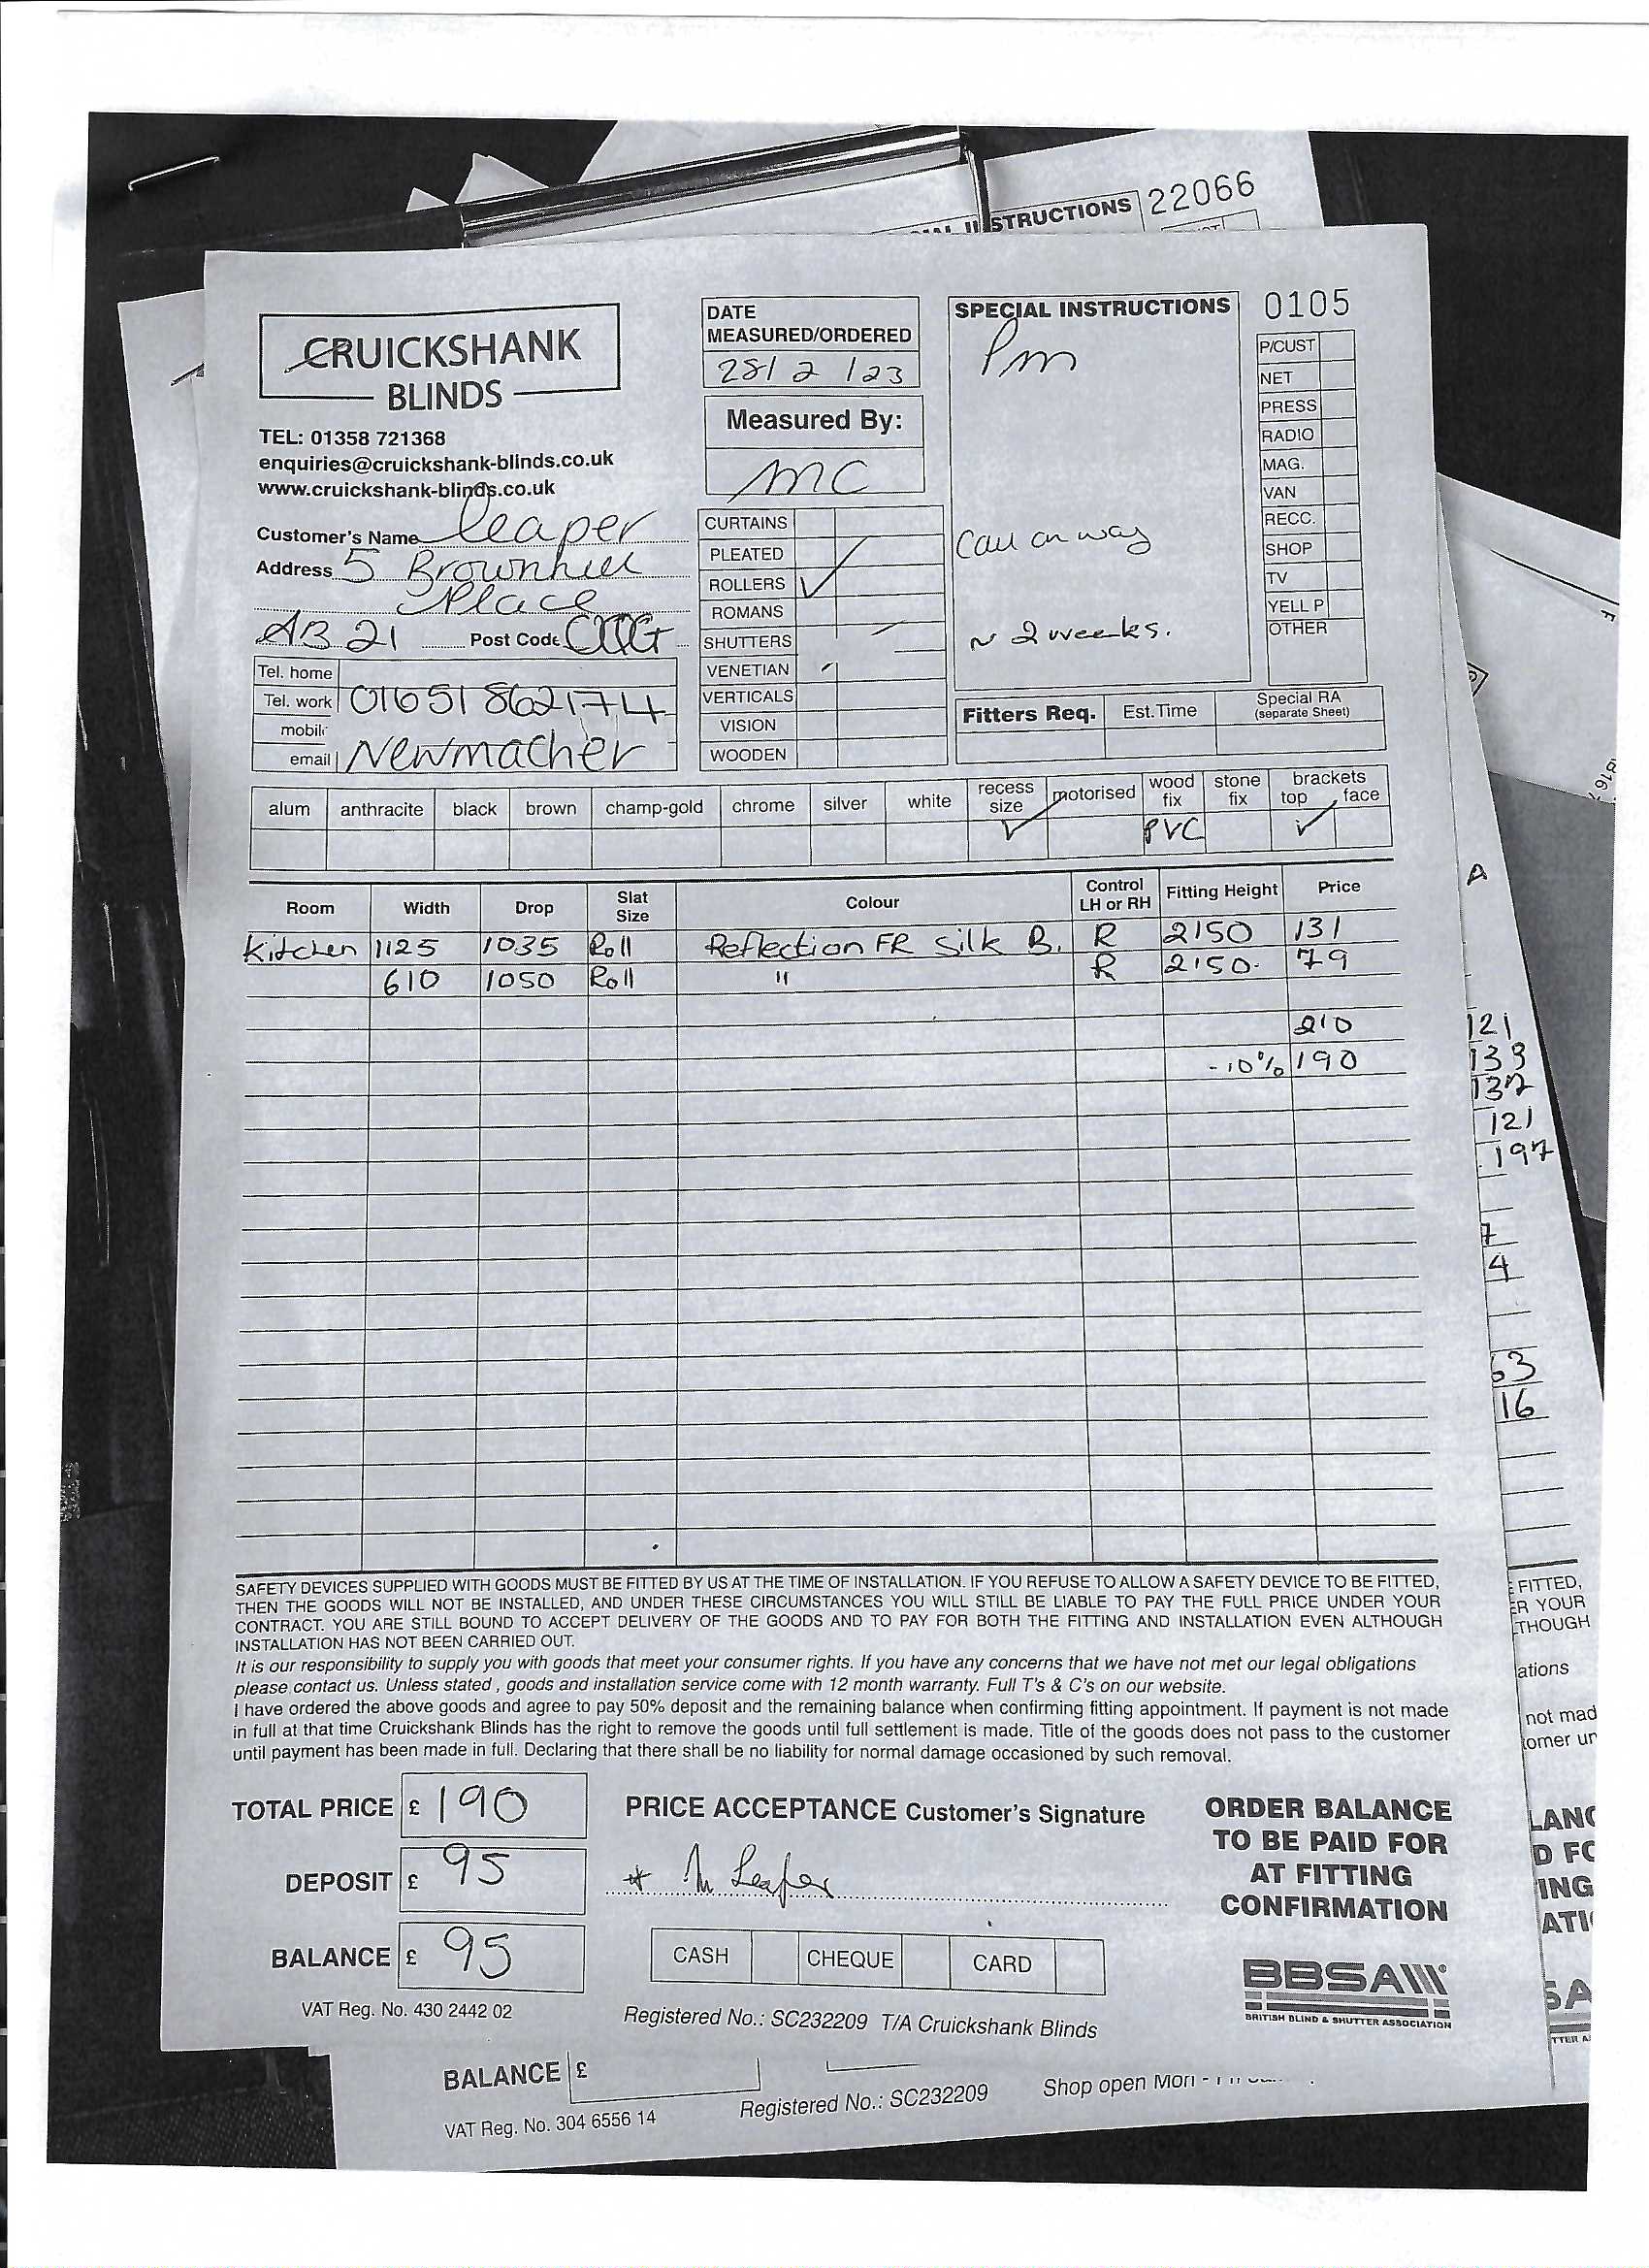 INSTRUCTIONS 22066
CRUICKSHANK
BLINDS
TEL: 01358 721368
enquiries@cruickshank-blinds.co.uk
www.cruickshank-blinds.co.uk
Customer's Name Leaper
Address 5 Brownhill
Place
AB21 Post Code
Tel. home
Tel. work 01651 862174
mobile
email Newmacher
DATE
MEASURED/ORDERED
28/2/23
Measured By:
MC
CURTAINS
PLEATED
ROLLERS ✓
ROMANS
SHUTTERS
VENETIAN
VERTICALS
VISION
WOODEN
SPECIAL INSTRUCTIONS
Pm
Call on way
~ 2 weeks.
0105
P/CUST
NET
PRESS
RADIO
MAG.
VAN
RECC.
SHOP
TV
YELL P
OTHER
Fitters Req. Est.Time Special RA
(separate Sheet)
alum anthracite black brown champ-gold chrome silver white recess size motorised wood fix stone fix brackets top face
✓ PVC ✓
Room Width Drop Slat Size Colour Control LH or RH Fitting Height Price
Kitchen 1125 1035 Roll Reflection FR Silk B. R 2150 131
610 1050 Roll " R 2150. 79
210
-10% 190
SAFETY DEVICES SUPPLIED WITH GOODS MUST BE FITTED BY US AT THE TIME OF INSTALLATION. IF YOU REFUSE TO ALLOW A SAFETY DEVICE TO BE FITTED,
THEN THE GOODS WILL NOT BE INSTALLED, AND UNDER THESE CIRCUMSTANCES YOU WILL STILL BE LIABLE TO PAY THE FULL PRICE UNDER YOUR
CONTRACT. YOU ARE STILL BOUND TO ACCEPT DELIVERY OF THE GOODS AND TO PAY FOR BOTH THE FITTING AND INSTALLATION EVEN ALTHOUGH
INSTALLATION HAS NOT BEEN CARRIED OUT.
It is our responsibility to supply you with goods that meet your consumer rights. If you have any concerns that we have not met our legal obligations
please contact us. Unless stated , goods and installation service come with 12 month warranty. Full T's & C's on our website.
I have ordered the above goods and agree to pay 50% deposit and the remaining balance when confirming fitting appointment. If payment is not made
in full at that time Cruickshank Blinds has the right to remove the goods until full settlement is made. Title of the goods does not pass to the customer
until payment has been made in full. Declaring that there shall be no liability for normal damage occasioned by such removal.
TOTAL PRICE £ 190
DEPOSIT £ 95
BALANCE £ 95
VAT Reg. No. 430 2442 02
PRICE ACCEPTANCE Customer's Signature
* M Leaper
CASH CHEQUE CARD
Registered No.: SC232209 T/A Cruickshank Blinds
ORDER BALANCE
TO BE PAID FOR
AT FITTING
CONFIRMATION
BBSA
BRITISH BLIND & SHUTTER ASSOCIATION
A
121
133
137
121
197
7
4
63
16
FITTED,
ER YOUR
THOUGH
ations
not mad
omer un
LANC
D FO
ING
ATI
SA
BALANCE £
VAT Reg. No. 304 6556 14
Registered No.: SC232209
Shop open Mon -